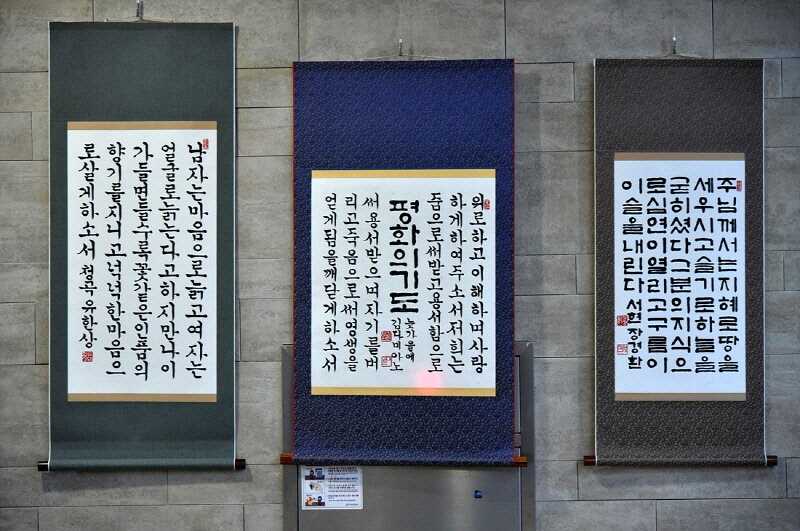 남자는마음으로늙고여자는
얼굴로늙는다고하지만나이
가들면들수록꽃같은인품의
향기를지니고넉넉한마음으
로살게하소서 청목 유한상
위로하고이해하며사랑
하게하여주소서저희는
줌으로써받고용서함으로
평화의기도
늦가을에
김다미아노
써용서받으며자기를버
리고죽음으로써영생을
얻게됨을깨닫게하소서
주님께서는지혜로땅을
세우시고슬기로하늘을
굳히셨다그분의지식으
로심연이열리고구름이
이슬을내린다 서현 장경환